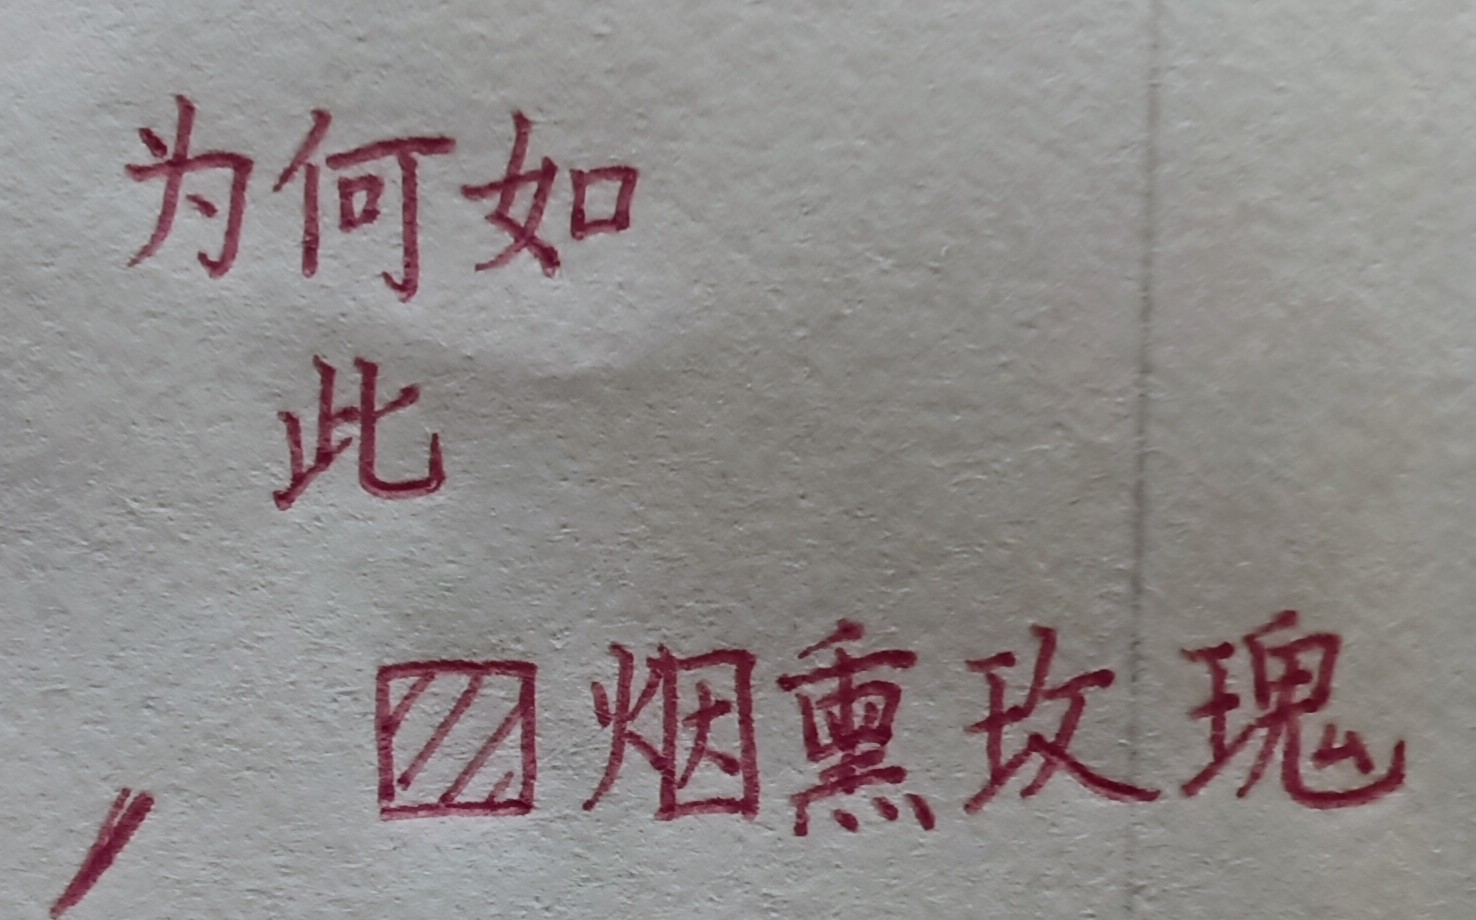 为何如
此
烟熏玫瑰